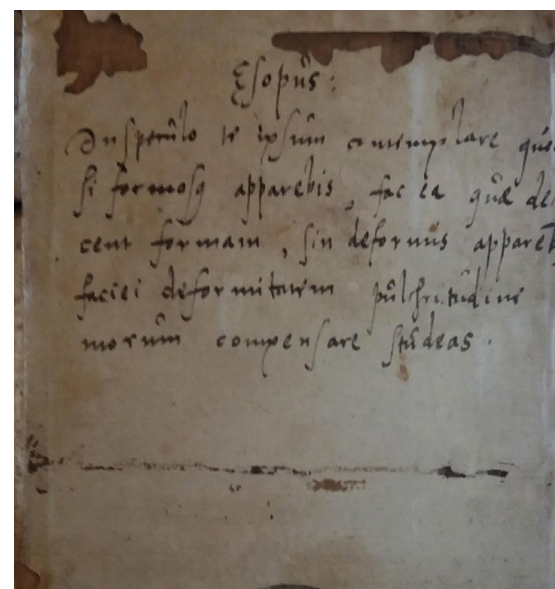 Esopus:
In speculo te ipsum contemplare
si formosq apparebis, fac ea quæ de
cent formam, sin deformis appareb
faciei deformitatem pulchritudine
morum compensare studeas.